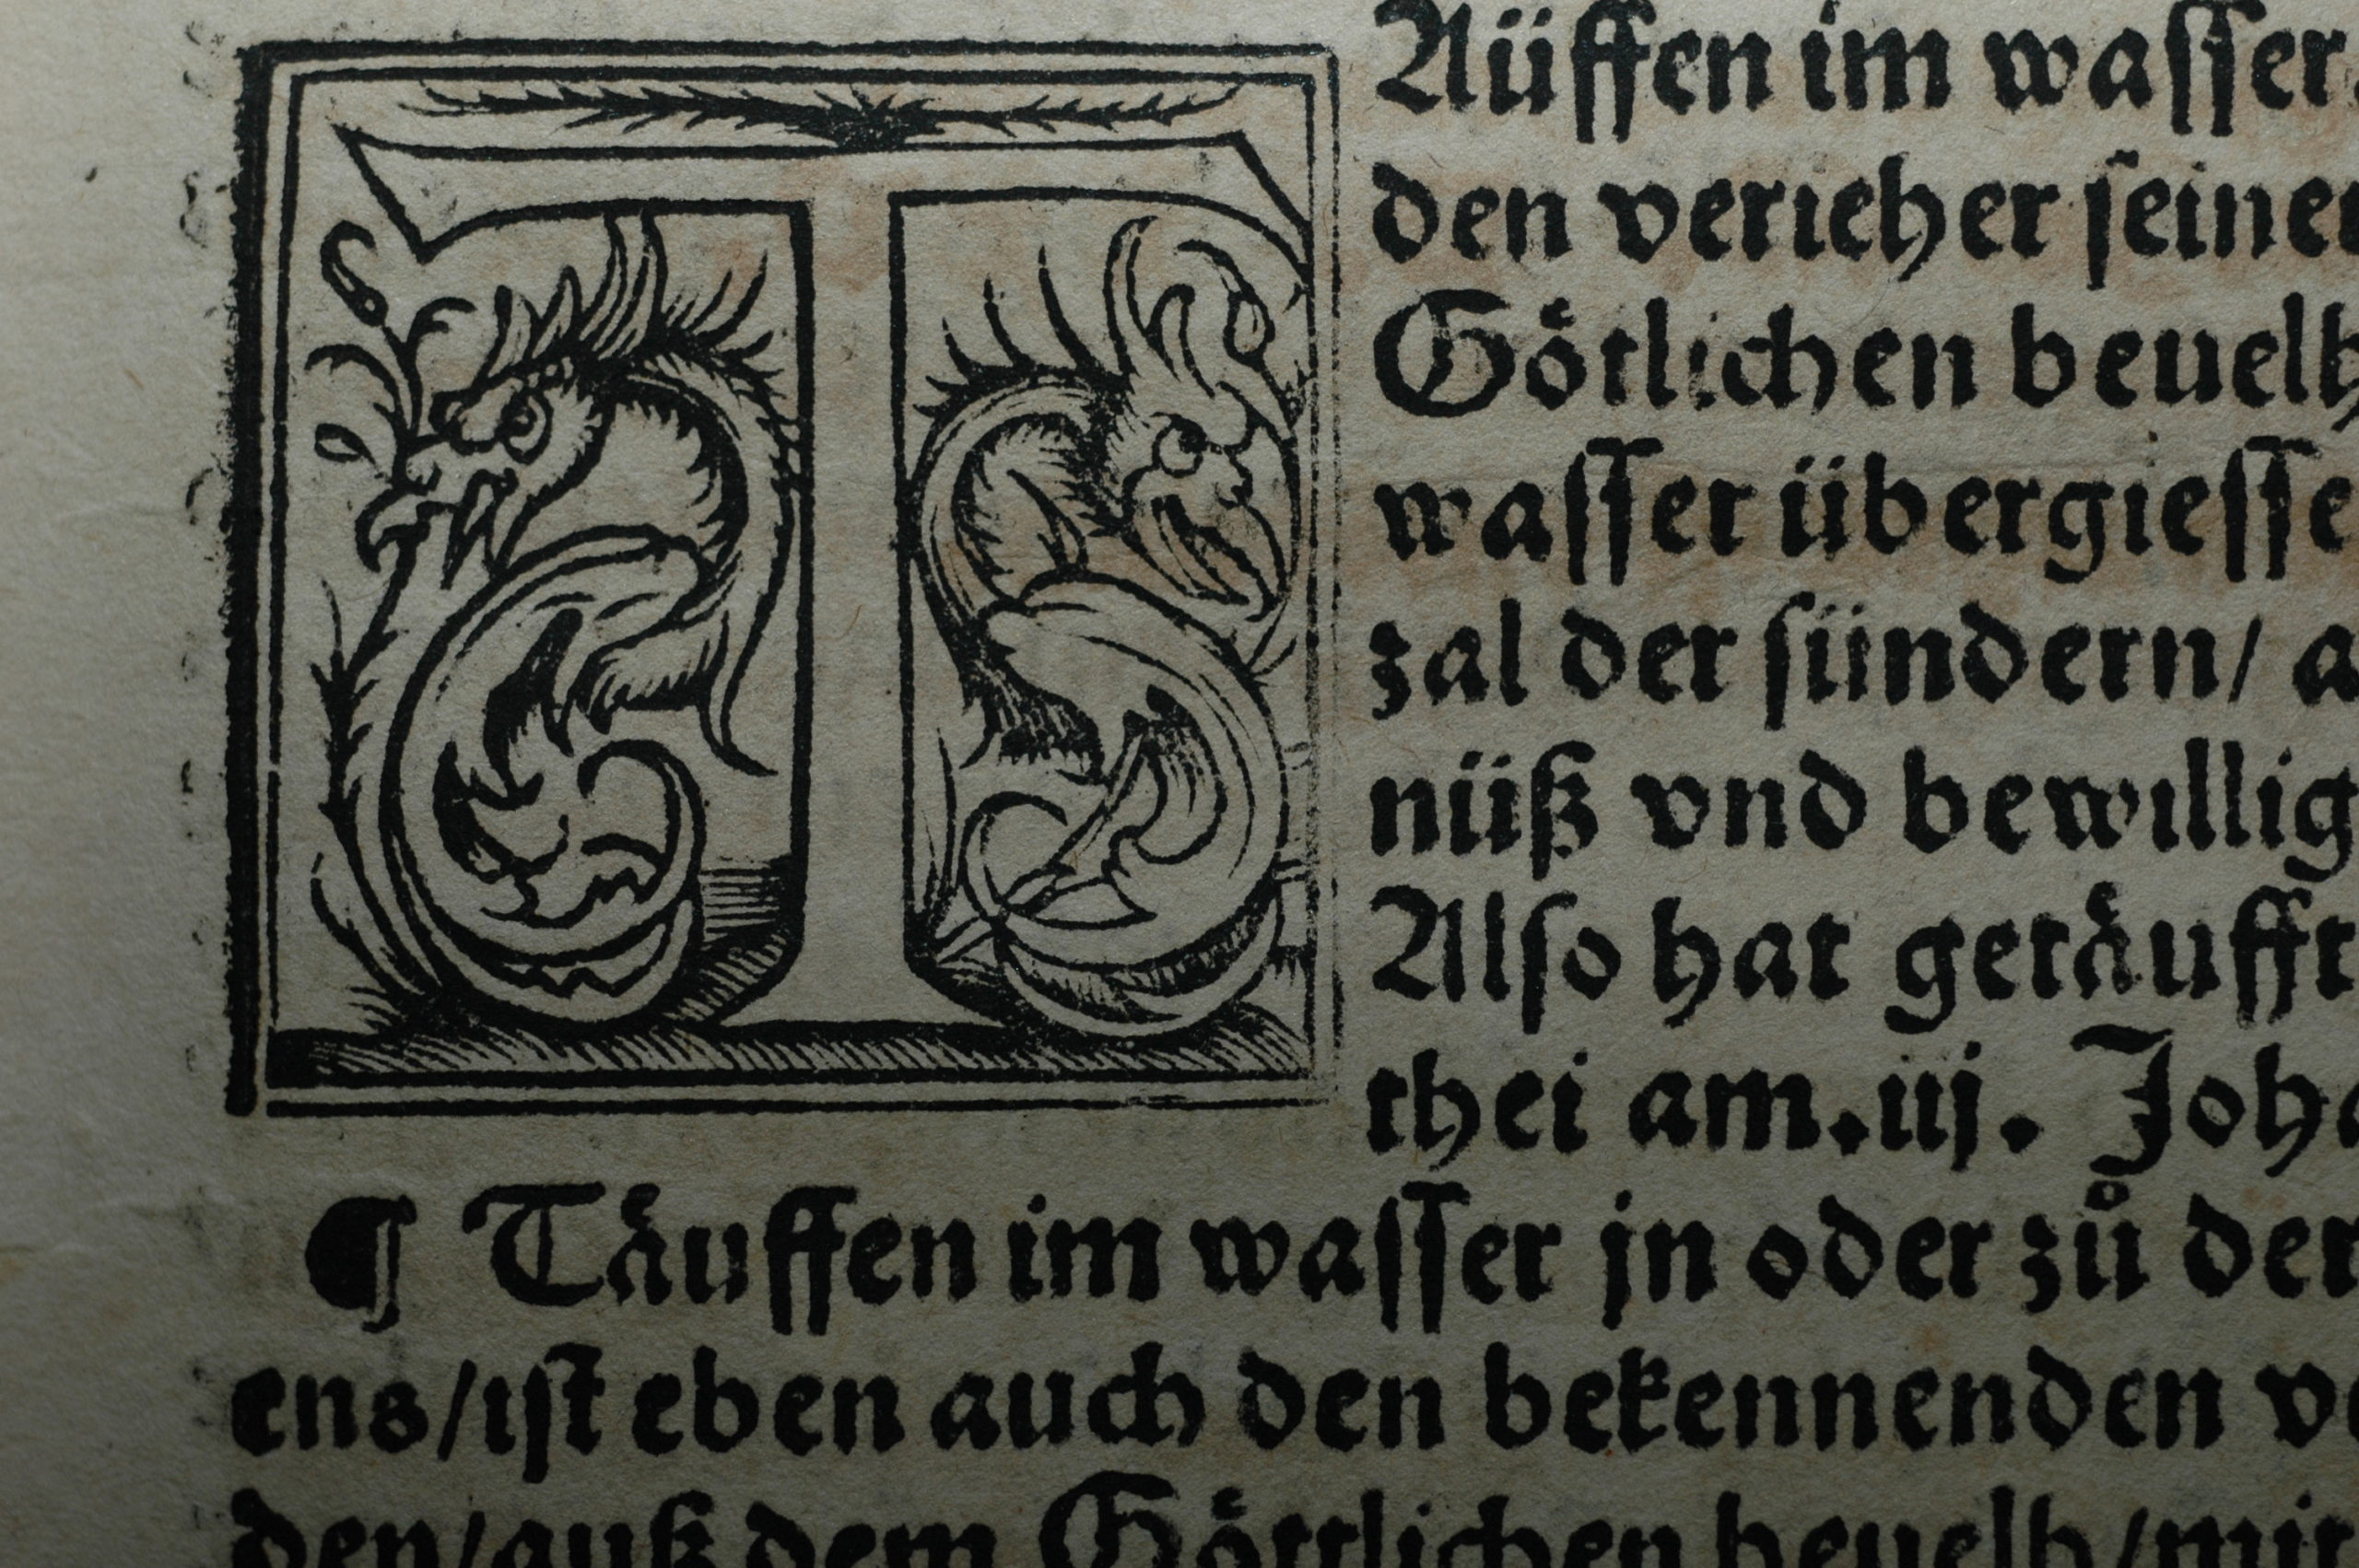 T Aüffen im wasser
den verieher seiner
Götlichen beuelh
wasser übergiesse
zal der sündern/ a
nüß vnd bewillig
Also hat getaͤufft
thei am.iij. Joha
¶ Taͤuffen im wasser jn oder zů der
ens/ist eben auch den bekennenden ve
den/auß dem Göttlichen beuelh/mit